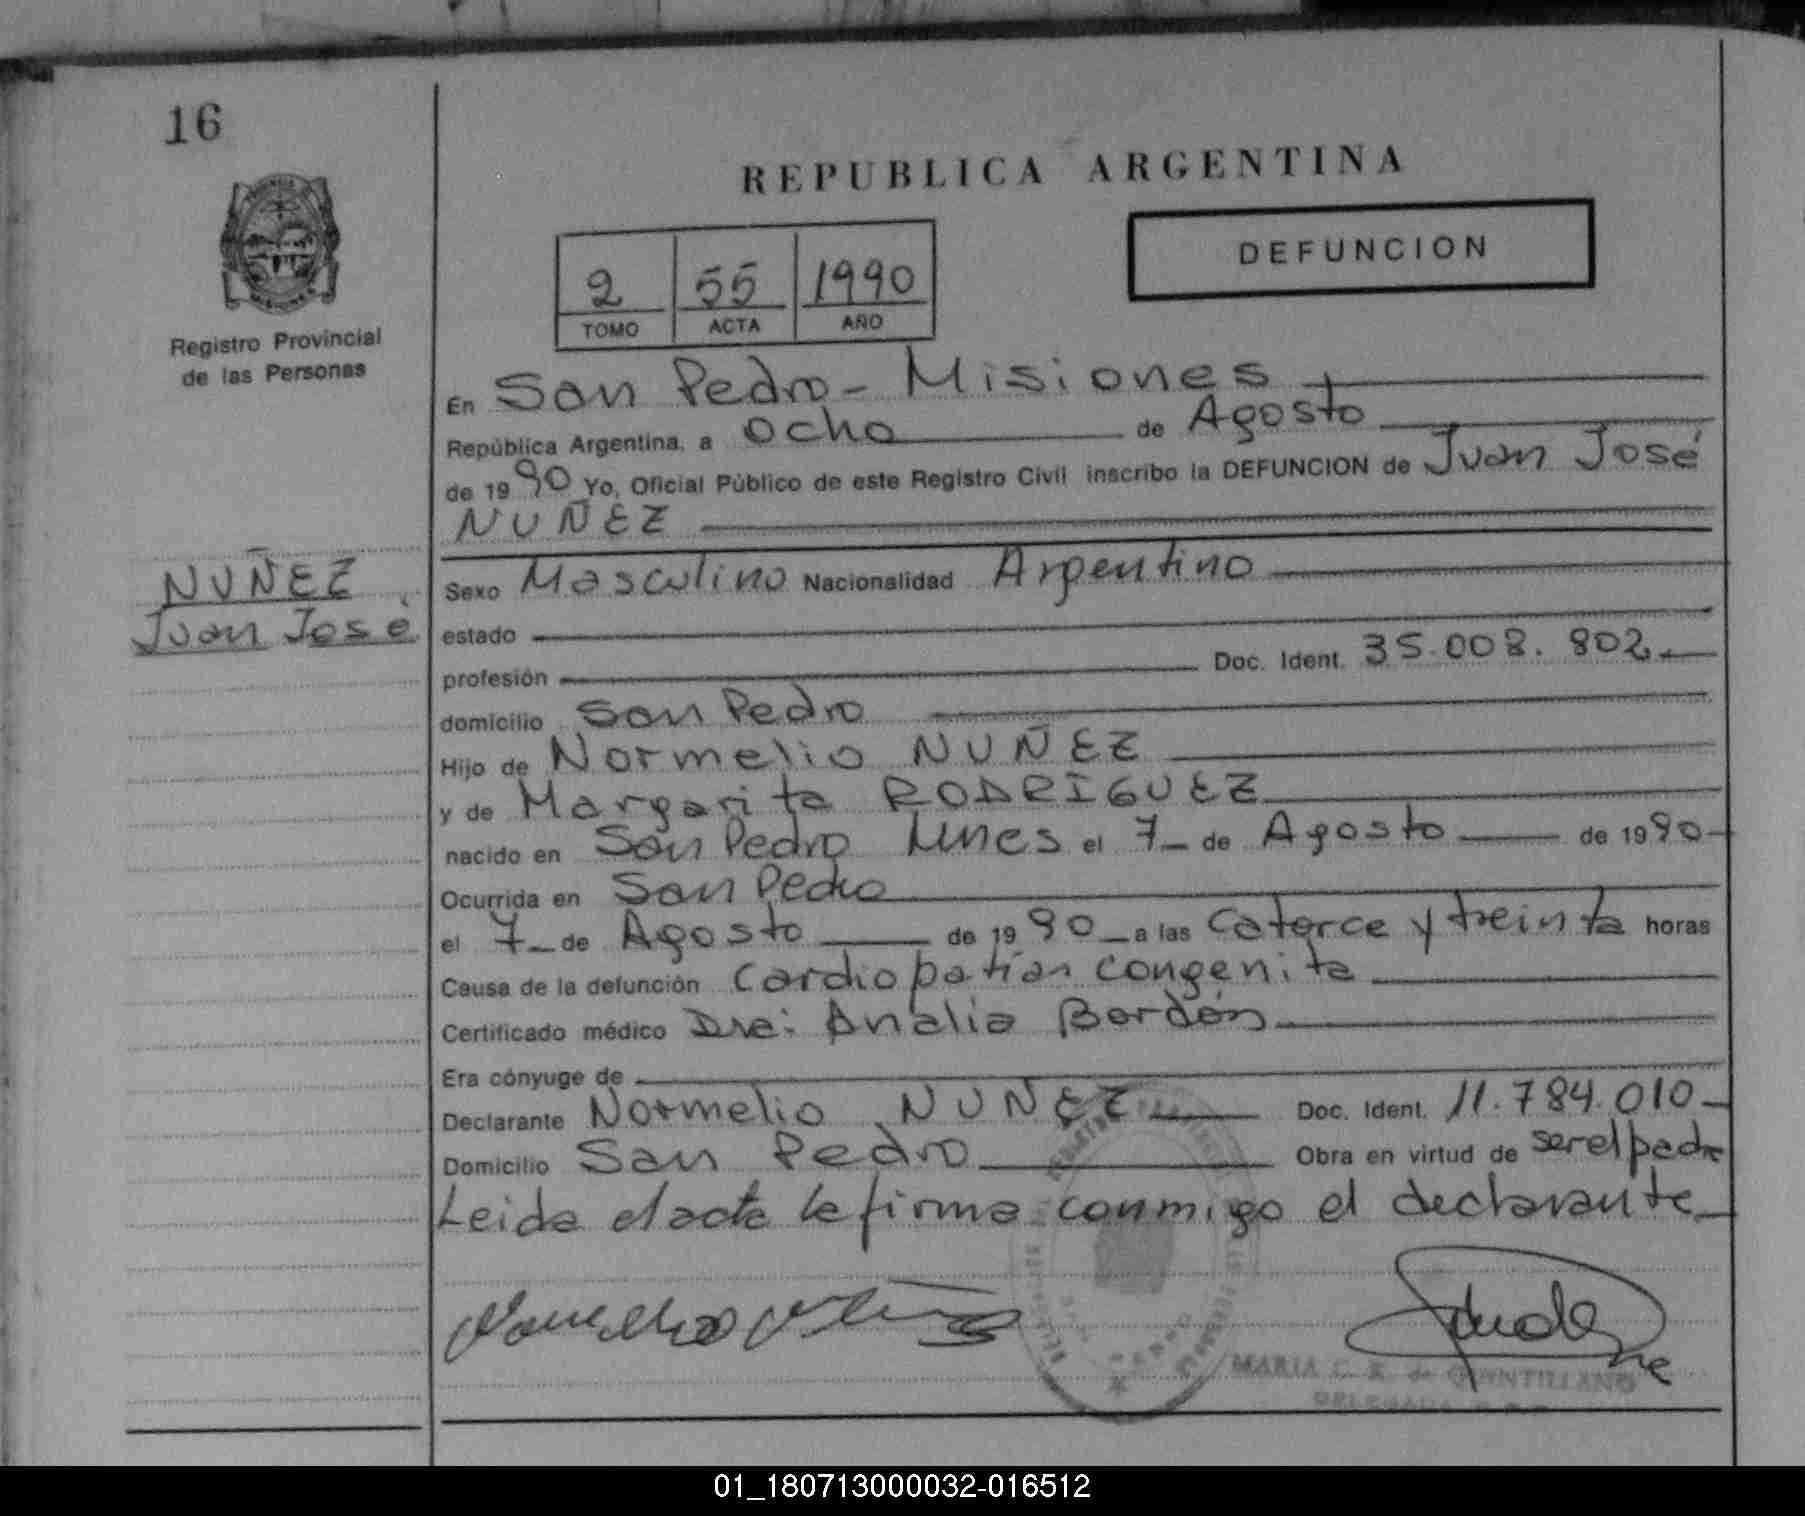 16
REPUBLICA ARGENTINA
DEFUNCION
2 55 1990
TOMO ACTA AÑO
Registro Provincial
de las Personas
En San Pedro - Misiones
República Argentina, a ocho de Agosto
de 1990 Yo, Oficial Público de este Registro Civil inscribo la DEFUNCION de Juan José
NUÑEZ
NUÑEZ
Juan José
Sexo Masculino Nacionalidad Argentino
estado
profesión Doc. Ident. 35.008.802
domicilio San Pedro
Hijo de Normelio NUÑEZ
y de Margarita RODRIGUEZ
nacido en San Pedro lunes el 7 de Agosto de 1990
Ocurrida en San Pedro
el 7 de Agosto de 1990 a las catorce y treinta horas
Causa de la defunción Cardiopatias congenita
Certificado médico Dra: Analia Bordón
Era cónyuge de
Declarante Normelio NUÑEZ Doc. Ident. 11.784.010
Domicilio San Pedro Obra en virtud de ser el padre
Leida el acta la firma conmigo el declarante
MARIA C. K. de QUINTILLANO
01_180713000032-016512